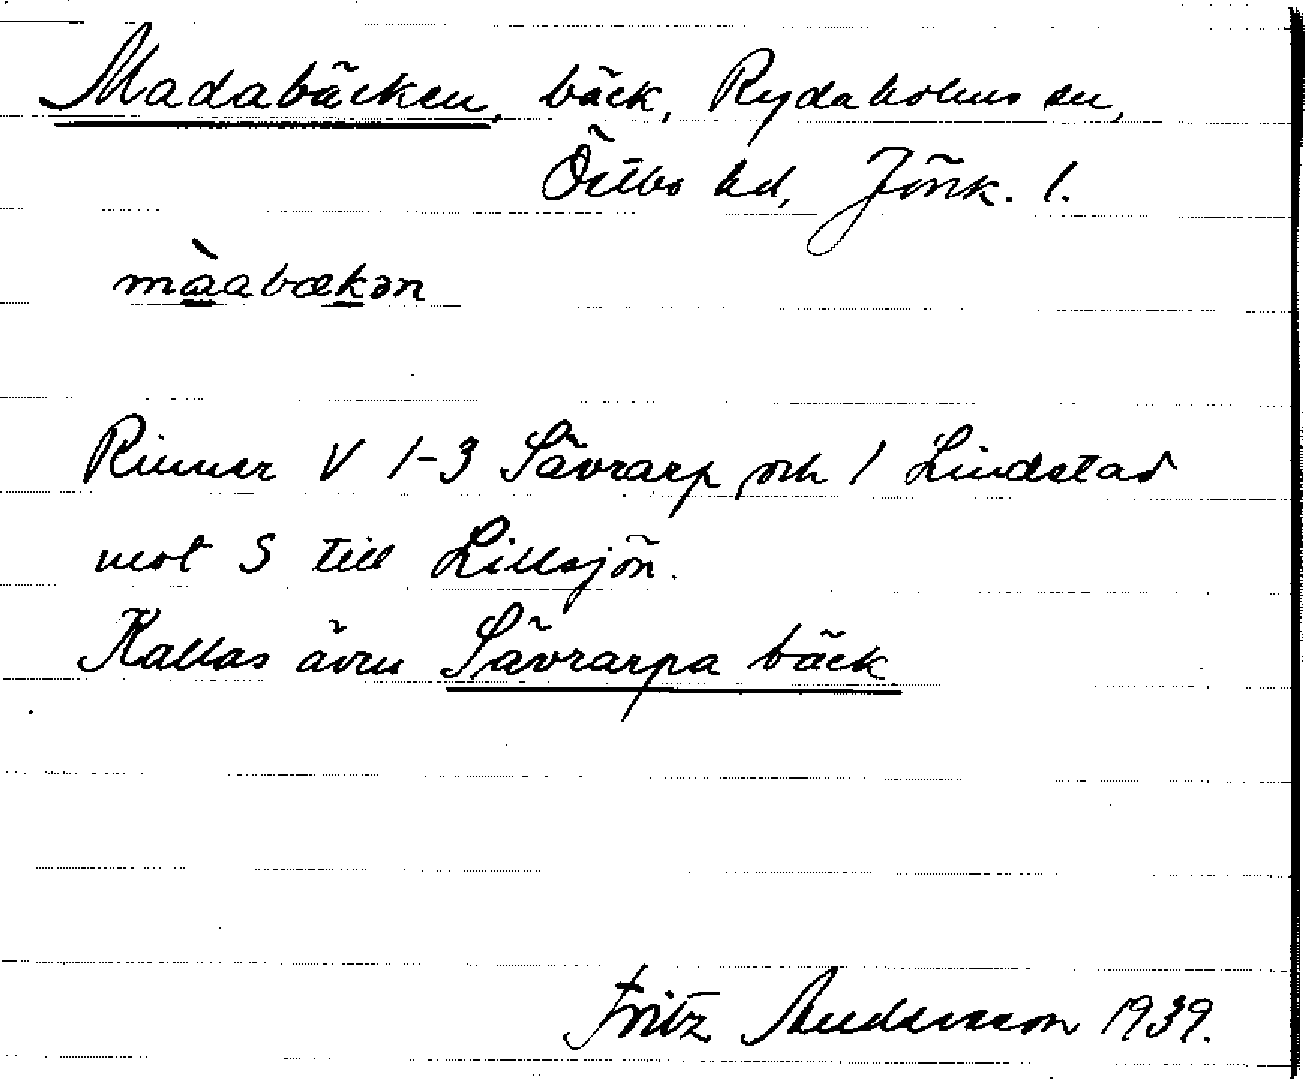 Madabäcken, bäck, Rydaholms sn,
Östbo hd, Jönk. l.
màabækən
Rinner V 1-3 Sävrarp och 1 Lindstad
mot S till Lillsjön.
Kallas även Sävrarpa bäck
Fritz Andersson 1939.